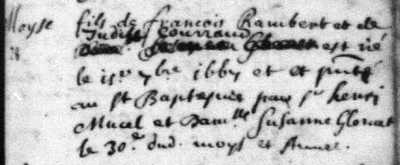 Moyse fils de francois Rambert et de
Judith Courraud est né
le 15e 7bre 1667 et et pnté
au St Baptesme par Sr henri
Mucel et Damlle Susanne Glouat
le 30e dud. moys et Annee.